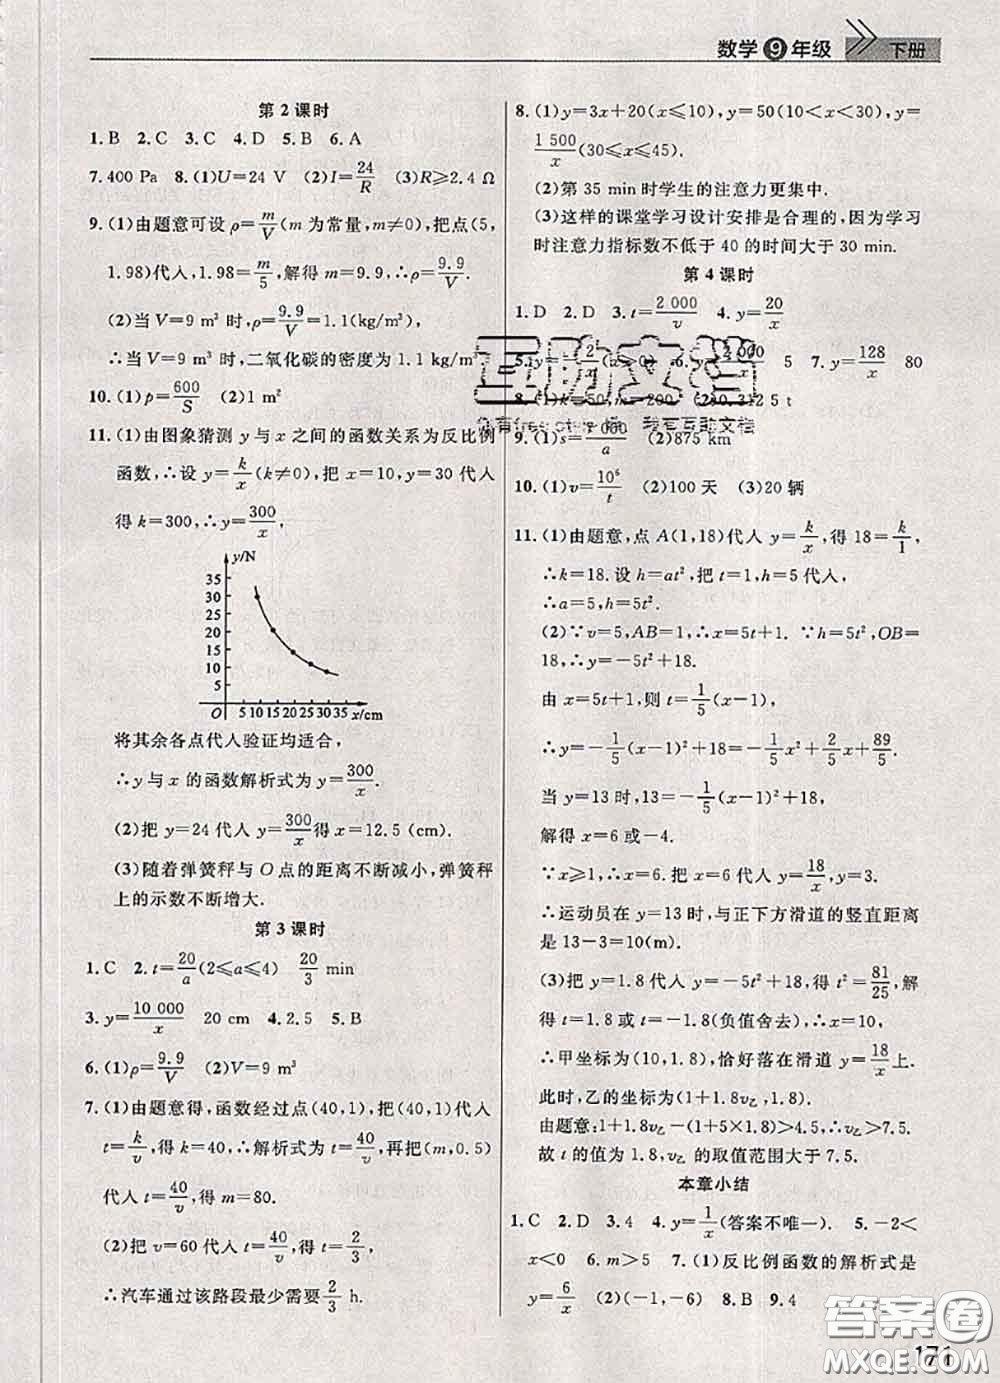 数学❾年级 下册
第2课时
1.B 2.C 3.C 4.D 5.B 6.A
7.400 Pa 8.(1)U=24 V (2)I=24/R (3)R≥2.4 Ω
9.(1)由题意可设 ρ=m/V(m 为常量,m≠0),把点(5,
1.98)代入,1.98=m/5,解得 m=9.9,∴ρ=9.9/V.
(2)当 V=9 m³ 时,ρ=9.9/V=1.1(kg/m³),
∴当 V=9 m³ 时,二氧化碳的密度为 1.1 kg/m³.
10.(1)p=600/S (2)1 m²
11.(1)由图象猜测 y 与 x 之间的函数关系为反比例
函数,∴设 y=k/x(k≠0),把 x=10,y=30 代人
得 k=300,∴y=300/x,
y/N
35
30
25
20
15
10
5
O 5 10 15 20 25 30 35 x/cm
将其余各点代人验证均适合,
∴y 与 x 的函数解析式为 y=300/x.
(2)把 y=24 代人 y=300/x得 x=12.5 (cm).
(3)随着弹簧秤与 O 点的距离不断减小,弹簧秤
上的示数不断增大.
第3课时
1.C 2.t=20/a(2≤a≤4) 20/3 min
3.y=10 000/x 20 cm 4.2.5 5.B
6.(1)ρ=9.9/V (2)V=9 m³
7.(1)由题意得,函数经过点(40,1),把(40,1)代人
t=k/v,得 k=40,∴解析式为 t=40/v,再把(m,0.5)
代人 t=40/v,得 m=80.
(2)把 v=60 代人 t=40/v,得 t=2/3,
∴汽车通过该路段最少需要2/3 h.
8.(1)y=3x+20(x≤10),y=50(10<x<30),y=
1 500/x(30≤x≤45).
(2)第 35 min时学生的注意力更集中.
(3)这样的课堂学习设计安排是合理的,因为学习
时注意力指标数不低于 40 的时间大于 30 min.
第4课时
1.D 2.D 3.t=2 000/v 4.y=20/x
5. y=2/x(x>0) 6. 2 000/x 5 7.y=128/x 80
互助文档
8.(1)k=50,m=200 312.5 t
9.(1)s= 000/a (2)875 km
我有互助文档
10.(1)v=10⁶/t (2)100 天 (3)20 辆
11.(1)由题意,点 A(1,18)代人 y=k/x,得 18=k/1,
∴k=18.设 h=at²,把 t=1,h=5 代人,
∴a=5,h=5t².
(2)∵v=5,AB=1,∴x=5t+1. ∵h=5t²,OB=
18,∴y=-5t²+18.
由 x=5t+1,则 t=1/5(x-1),
∴y=-1/5(x-1)²+18=-1/5x²+2/5x+89/5.
当 y=13 时,13=-1/5(x-1)²+18,
解得 x=6 或-4.
∵x≥1,∴x=6.把 x=6 代人 y=18/x,y=3.
∴运动员在 y=13 时,与正下方滑道的竖直距离
是 13-3=10(m).
(3)把 y=1.8 代人 y=-5t²+18,得 t²=81/25,解
得 t=1.8 或 t=-1.8(负值舍去),∴x=10,
∴甲坐标为(10,1.8),恰好落在滑道 y=18/x上.
此时,乙的坐标为(1+1.8v乙,1.8).
由题意:1+1.8v乙-(1+5×1.8)>4.5,∴v乙>7.5.
故 t 的值为 1.8,v乙 的取值范围大于 7.5.
本章小结
1.C 2.D 3.4 4.y=1/x(答案不唯一). 5.-2<
x<0 6.m>5 7.(1)反比例函数的解析式是
y=6/x (2)(-1,-6) 8.B 9.4
答案圈
MXQE.COM
171